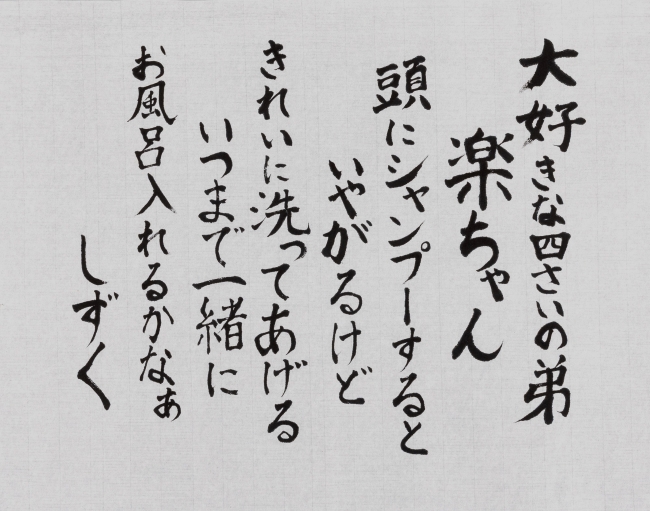 大好きな四さいの弟
楽ちゃん
頭にシャンプーすると
いやがるけど
きれいに洗ってあげる
いつまで一緒に
お風呂入れるかなぁ
しずく